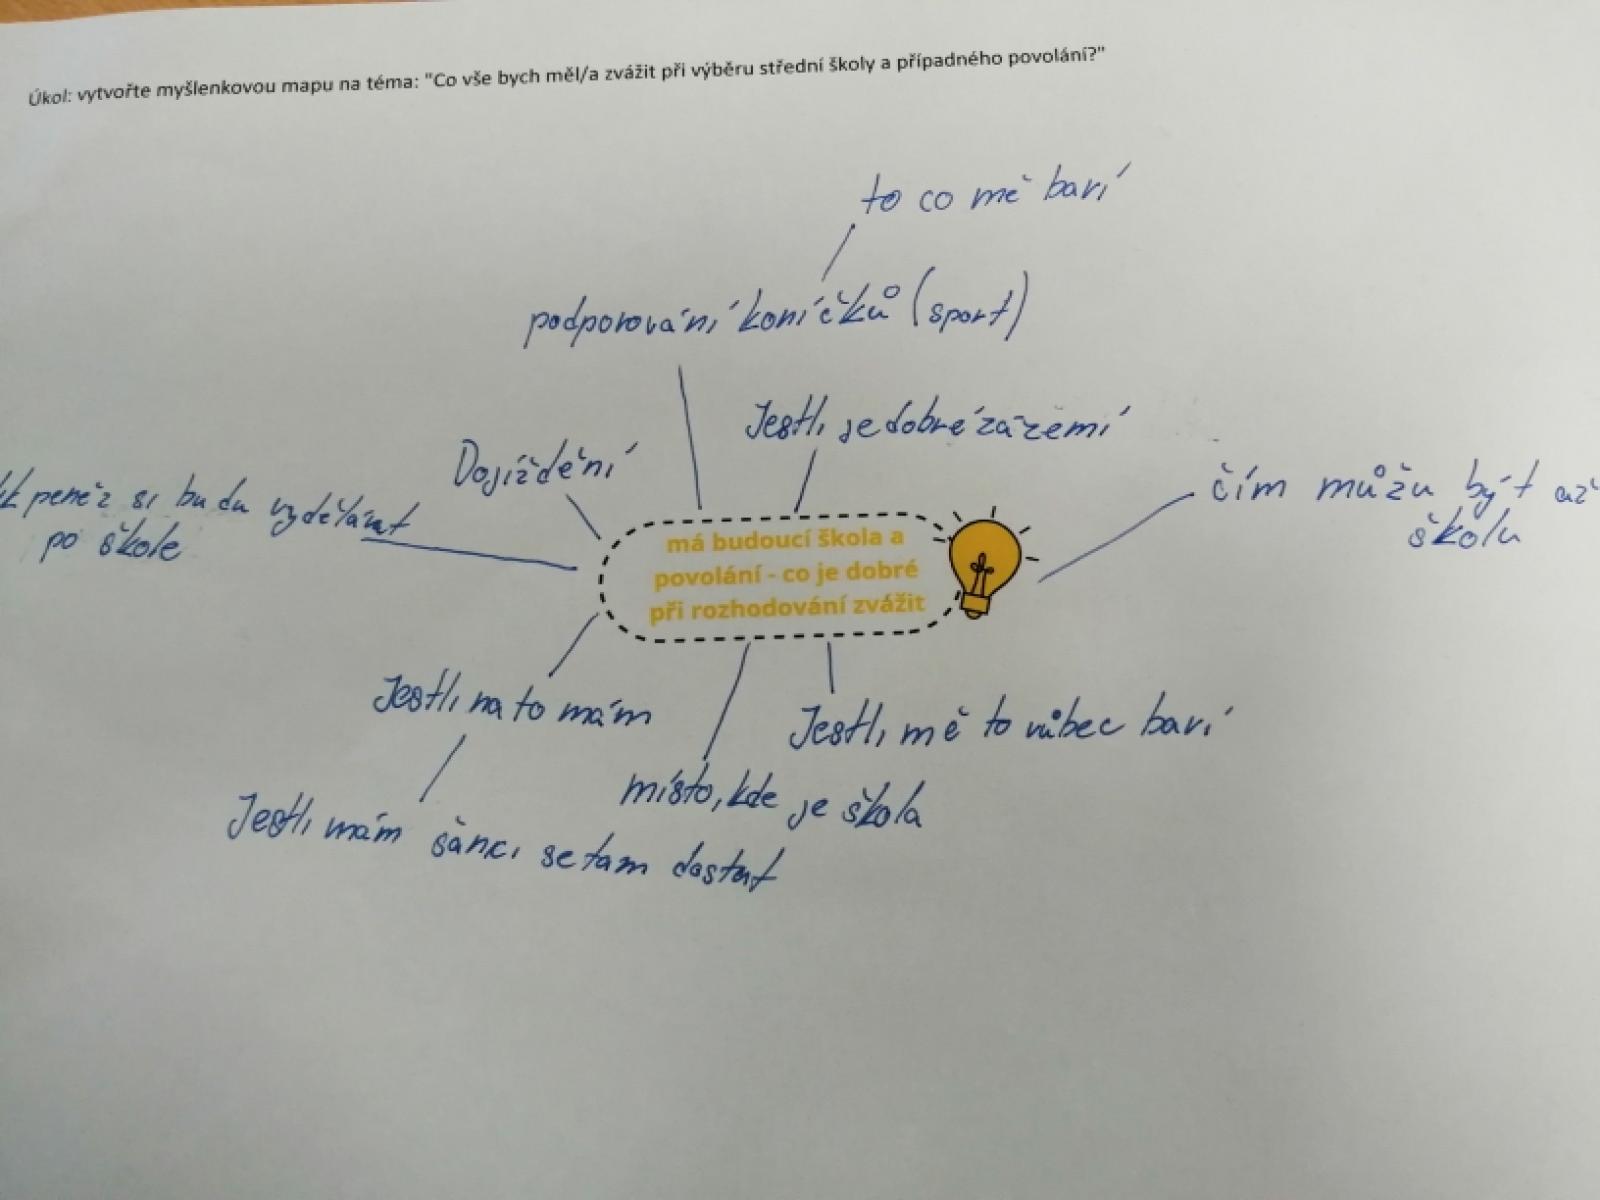 Úkol: vytvořte myšlenkovou mapu na téma: "Co vše bych měl/a zvážit při výběru střední školy a případného povolání?"
to co mě baví
podporování koníčků (sport)
Jestli je dobré zázemí
Dojíždění
čím můžu být až
školu
peněz si budu vydělávat
po škole
má budoucí škola a
povolání - co je dobré
při rozhodování zvážit
Jestli na to mám
Jestli mě to vůbec baví
místo, kde je škola
Jestli mám šanci se tam dostat